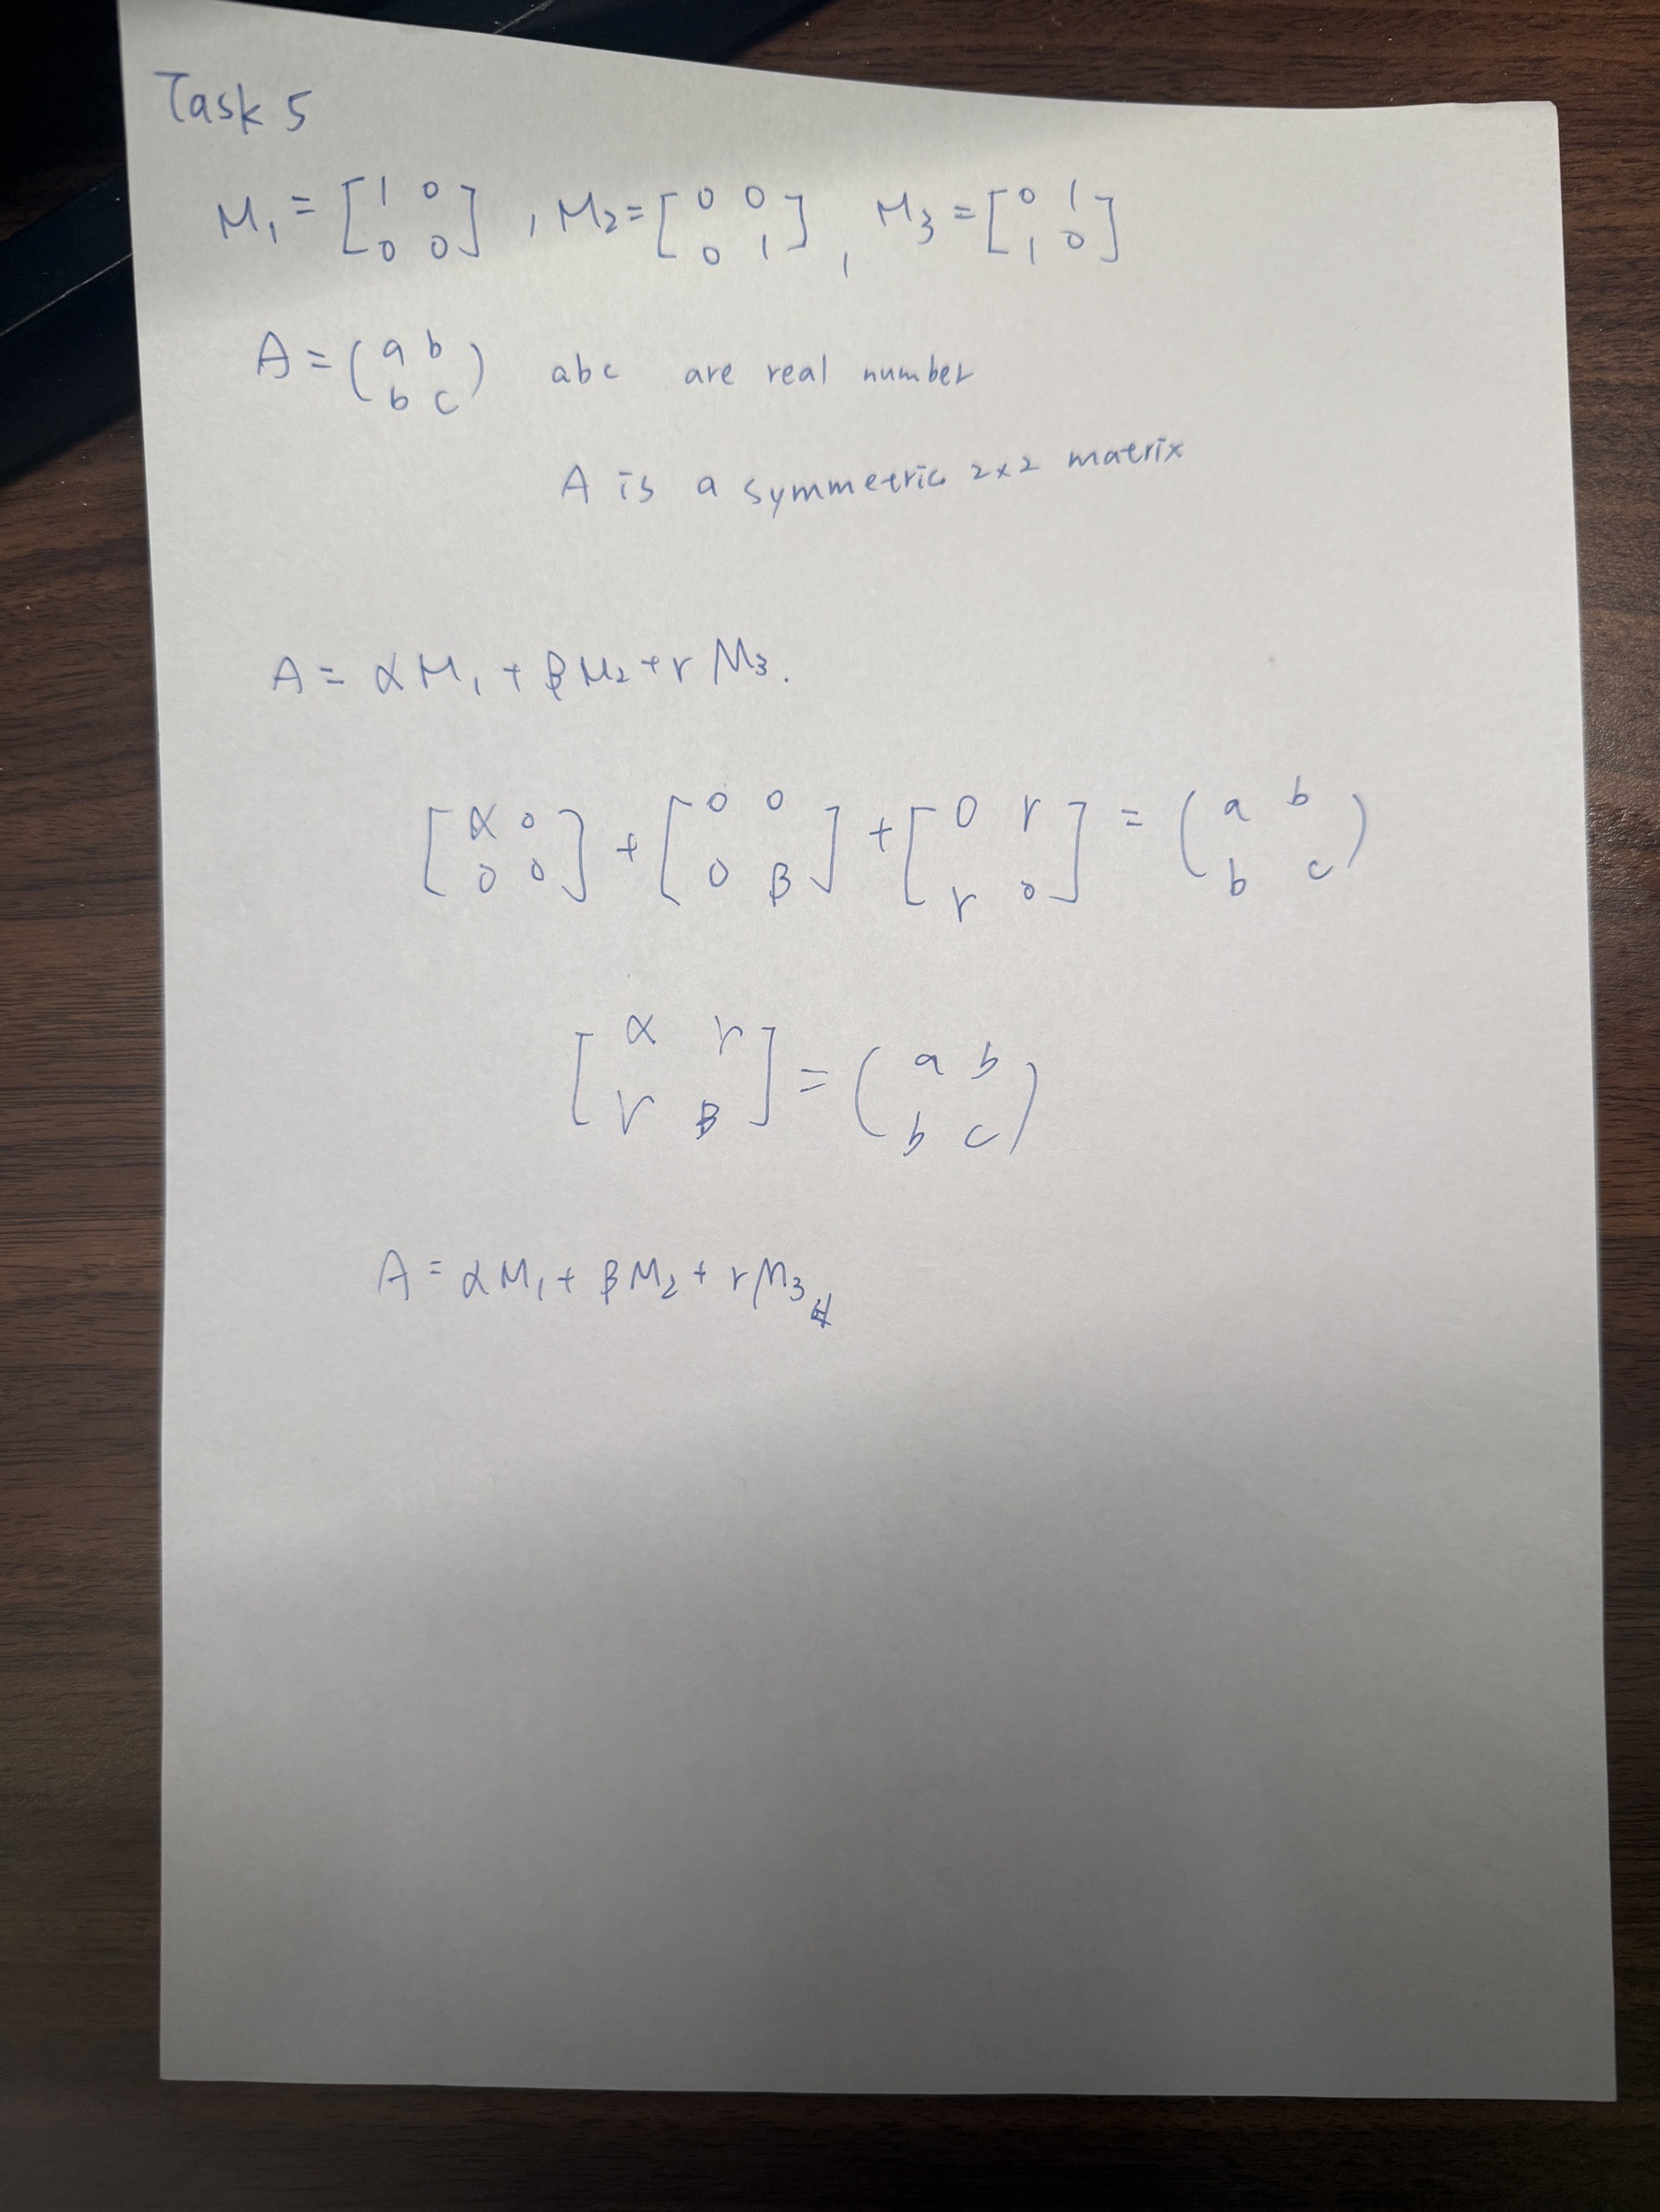 Task 5
M₁ = [1 0 0 0], M₂ = [0 0 0 1], M₃ = [0 1 1 0]
A = (a b b c) abc are real number
A is a symmetric 2×2 matrix
A = αM₁ + βM₂ + rM₃.
[α 0 0 0] + [0 0 0 β] + [0 r r 0] = (a b b c)
[α r r β] = (a b b c)
A = αM₁ + βM₂ + rM₃ #